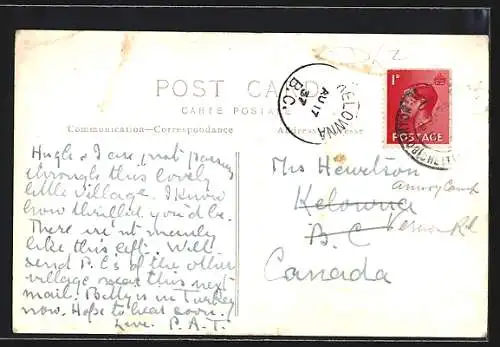 POST CARD
CARTE POSTALE
Communication—Correspondence
Address
KELOWNA
AU 17
37
B.C.
1D
POSTAGE
Hugh & I are just passing
through this lovely
little village. I know
how thrilled you'd be.
There isn't many
like this left. Will
send P.C's of the other
village near this next
mail. Betty is in Turkey
now. Hope to hear soon.
Love. P.A.T.
Mrs Hewetson
Kelowna
Army Camp
B C
Vernon Rd
Canada